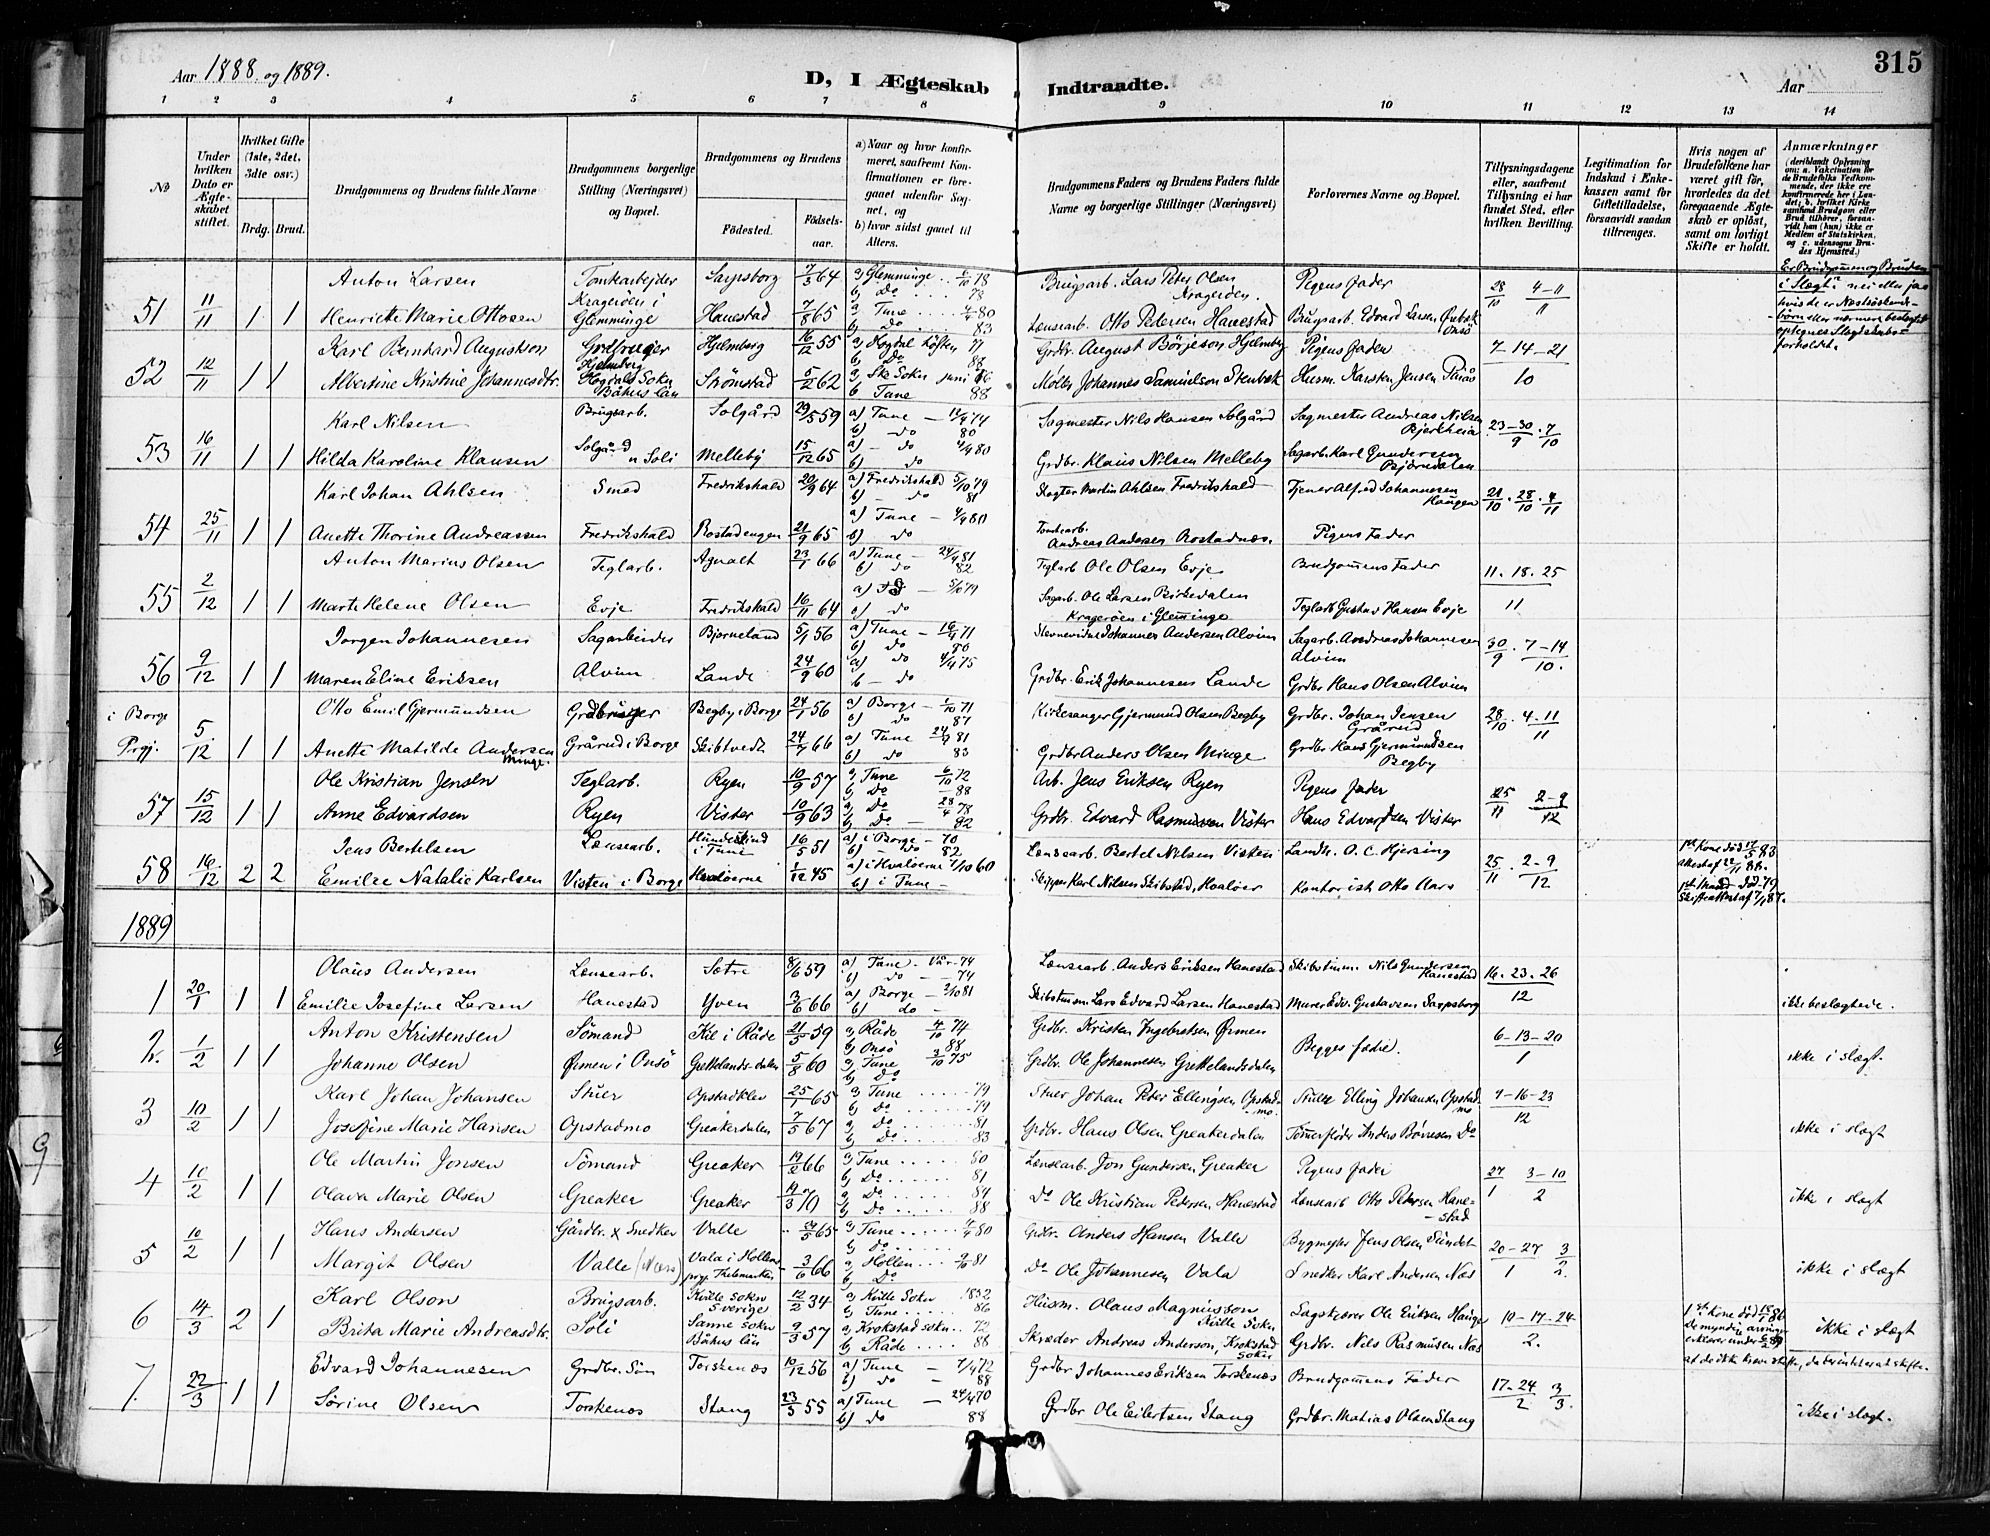 Aar 1888. og 1889.
D, I Ægteskab Indtraadte.
Aar
315
1 2 3 4 5 6 7 8 9 10 11 12 13 14
No
Under hvilken Dato er Ægteskabet stiftet.
Hvilket Gifte (1ste, 2det, 3die osv.)
Brdg. Brud.
Brudgommens og Brudens fulde Navne
Brudgommens borgerlige Stilling (Næringsvei) og Bopæl.
Brudgommens og Brudens
Fødested. Fødsels-aar.
a) Naar og hvor konfirmeret, saafremt Konfirmationen er foregaaet udenfor Sognet, og
b) hvor sidst gaaet til Alters.
Brudgommens Faders og Brudens Faders fulde Navne og borgerlige Stillinger (Næringsvei)
Forlovernes Navne og Bopæl.
Tillysningsdagene eller, saafremt Tillysning ei har fundet Sted, efter hvilken Bevilling.
Legitimation for Indskud i Enkekassen samt for Giftetilladelse, forsaavidt saadan tiltrænges.
Hvis nogen af Brudefolkene har været gift før, hvorledes da det foregaaende Ægteskab er opløst, samt om lovligt Skifte er holdt.
Anmærkninger
(deriblandt Oplysning om: a. Vakcination for de Brudefolks Vedkommende, der ikke ere konfirmerede her i Landet; b. hvilket Kirkesamfund Brudgom eller Brud tilhører, forsaavidt han (hun) ikke er Medlem af Statskirken, og c. udensogns Brudes Hjemsted.)
Er Brudgommen og Bruden i Slægt? nei eller ja; hvis de er Næstsødskendebørn eller nærmere beslægtet optegnes Slægtskabsforholdet.
Anton Larsen Tomtearbejder Sarpsborg 7/3 64 a) Glemminge 1/10 78 Brugsarb. Lars Peter Olsen Kragerøen. Pigens Fader 28/10 4-11/11
b) Do 78
51 11/11 1 1 Henriette Marie Ottosen Kragerøen i Glemminge Hanestad 7/8 65 a) Tune 80 Lensearb. Otto Pedersen Hanestad Brugsarb. Edvard Larsen Onsø
b) Do 83
Karl Bernhard Augustson Grdbruger Hjelmberg 16/12 55 a) Hogdal høsten 71 Grdbr. August Börjeson Hjelmberg Pigens Fader 7-14-21/10
52 12/11 1 1 Albertine Kristine Johannesdtr. Hjelmberg Hogdals Sokn Båhus län Strömstad 5/2 62 Skee Sokn juni b Tune 88 Møller Johannes Samuelson Stenbæk Husm. Karsten Jensen
Karl Nilsen Brugsarb. Solgård 29/5 59 a) Tune 74 Sagmester Nils Hansen Solgård Sagmester Andreas Nilsen Bjerkheia 23-30/9 . 7/10
b) do 80
53 16/11 1 1 Hilda Karoline Klausen Solgård u Soli Melleby 15/12 65 a) do 4/4 80 Grdbr. Klaus Nilsen Melleby Sagarb. Karl Gundersen Bjørndalen
b) do
Karl Johan Ahlsen Smed Fredrikshald 20/9 64 a) Fredrikshald 5/10 79 Slagter Martin Ahlsen Fredrikshald Tjener Alfred Johannesen Haugen 21/10 . 28/10 . 4/11
b) do 81
54 25/11 1 1 Anette Thorine Andreassen Fredrikshald Rostadengen 21/9 65 a) Tune 4/4 80 Tomtearb. Andreas Andersen Rostadnæs. Pigens Fader
b) do
Anton Marius Olsen Teglarb. Agnalt 23/1 66 a) Tune 24/4 81 Teglarb Ole Olsen Evje Brudgommens Fader 11. 18. 25/11
b) do 82
55 2/12 1 1 Marte Helene Olsen Evje Fredrikshald 16/11 64 5/10 79 Sagarb. Ole Larsen Birkedalen Kragerøen i Glemminge Teglarb Gustav Hansen Evje
b) do
Jørgen Johannesen Sagarbeider Bjørneland 5/1 56 a) Tune 16/4 71 Stevnevidne Johannes Andersen Alvim Sagarb. Andreas Johannesen Alvim 30/9 . 7-14/10.
b) do 80
56 9/12 1 1 Maren Eline Eriksen Alvim Lande 24/9 60 a) do 4/4 75 Grdbr. Erik Johannesen Lande Grdbr Hans Olsen Alvim
b - do
i Borge Prgj. 5/12 1 1 Otto Emil Gjermundsen Grdbruger Begby i Borge 24/1 56 a) Borge 1/10 71 Kirkesanger Gjermund Olsen Begby Grdbr. Johan Jensen Grårud 28/10 . 4-11/11
b) do 87
Anette Matilde Andersen Minge. Grårud i Borge Skibtvedt 66 a) Tune 24/4 81 Grdbr Anders Olsen Minge Grdbr Hans Gjermundsen Begby
b) do 83
Ole Kristian Jensen Teglarb. Ryen 10/9 57 a) Tune 6/10 72 Arb. Jens Eriksen Ryen Pigens Fader 25/11 2-9/12
b) Do 88
57 15/12 1 1 Anne Edvardsen Ryen Vister 10/9 63 a) Do 28/4 78 Grdbr. Edvard Rasmussen Vister Hans Edvardsen Vister
b) Do 82
Jens Bertelsen Lensearb. i Tune 16/5 51 a) i Borge - 70 Lensearb. Bertel Nilsen Visten Landh. O. C. Hjersing 25/11 . 2-9/12 1st Kone død 17/5 83 attest af 22/11 88.
b) Do 82
58 16/12 2 2 Emilie Natalie Karlsen Visten i Borge Hvaløerne 1/12 45 a) i Hvaløerne 7/10 60 Skipper Karl Nilsen Skibstad, Hvaløer Kontorist Otto Aars 1st Mand død 79 Skifteattest af 7/1 87.
b) i Tune -
1889
Olaus Andersen Lensearb. Sætre 8/6 59 a) Tune - Vår - 74 Lensearb. Anders Eriksen Hanestad Skibstømm. Nils Gundersen Hanestad 16. 23. 26/12
b) do - 74
1 20/1 1 1 Emilie Josefine Larsen Hanestad Yven 3/6 66 a) Borge 2/10 81 Skibstømm Lars Edvard Larsen Hanestad Murer Edv. Gustavsen Sarpsborg ikke beslegtede.
b) do -
Anton Kristensen Sömand Kil i Råde 21/5 59 a) Råde 4/10 74 Grdbr. Kristen Ingebretsen Ørmen Begges fædre. 6-13-20/1
b) Onsö 88
2. 1/2 1 1 Johanne Olsen Ørmen i Onsö Grettelandsdalen 5/8 60 a) Tune 3/10 75 Grdbr. Ole Johannesen Grettelandsdalen ikke i slægt.
b) Do
Karl Johan Johansen Stuer Opstadklev 25/1 65 a) Tune 79 Stuer Johan Peter Ellingsen Opstadmo. Stuer Elling Johansen Opstadmo 9-16-23/12
b) Do. 79
3 10/2 1 1 Josefine Marie Hansen Opstadmo Greakerdalen 7/5 67 a) Do. 81 Grdbr. Hans Olsen Greakerdalen Tömmerfløder Anders Børresen Do ikke i slægt
b) Do. 83
Ole Martin Jonsen Sömand Greaker 19/2 66 a) Tune 80 Lensearb. Jon Gundersen Greaker Pigens fader 27/1 3-10/2
b) Do. 81
4 10/2 1 1 Olava Marie Olsen Greaker Greaker 70 a) Do. 84 Do Ole Kristian Pedersen Hanestad Lensearb Otto Pedersen Hanestad ikke i slægt
b) Do. 88
Hans Andersen Gårdbr. & Snedker Valle 65 a) Tune 80 Grdbr. Anders Hansen Valle Bygmester Jens Olsen Sundet 20-27/1 3/2.
b) do.
5 10/2 1 1 Margit Olsen Valle (Næs) Vala i Hollen prgj. Thelemarken 3/6 66 a) Hollen 81 Do Ole Johannesen Vala Snedker Karl Andersen Næs ikke i slægt
b) Do
Karl Olson Brugsarb. Kville Sokn Sverige 12/2 34 a) Kville Sokn 1852 Husm. Olaus Magnusson Kville Sokn Sagskjærer Ole Eriksen Hauge 10-17-24/2. 1st Kone død
b) Tune 86
6 14/3 2 1 Brita Marie Andreasdtr. Soli Sanne sokn Båhus län 9/3 57 a) Krokstad sokn 72 Skræder Andreas Anderson, Krokstad sokn Grdbr. Nils Rasmusen Næs ikke i slægt
b) Råde 88
Edvard Johannesen Grdbr. Søn Torskenæs 10/12 56 a) Tune 7/4 72 Grdbr Johannes Eriksen Torskenæs Brudgommens Fader 17-24/2 3/3.
b) do 88
7. 22/3 1 1 Sørine Olsen Torskenæs Stang 23/3 55 a) Tune 24/4 70 Grdbr Ole Eilertsen Stang Grdbr. Matias Olsen Stang ikke i slægt.
b) do 88